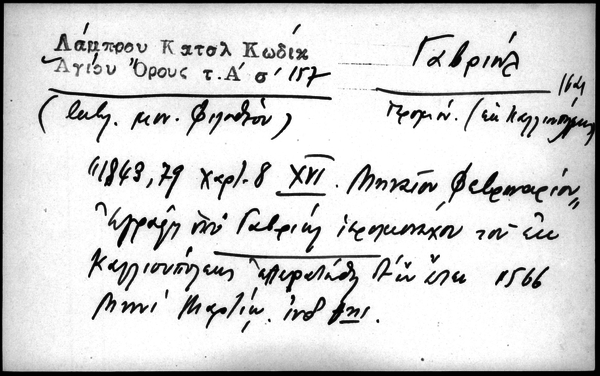 Λάμπρου Καταλ Κωδίκ
Ἁγίου Ὄρους τ. Α' σ' 157
Γαβριήλ
(κατ. μον. Φιλοθέου)
ἱερομόν. (ἐκ Καλλιουπόλεως)
"1843, 79 χαρτ. 8 XVI. Μηναῖον Φεβρουαρίου"
Ἐγράφη ὑπὸ Γαβριὴλ ἱερομονάχου τοῦ ἐκ
Καλλιουπόλεως ἐν ἔτει 1566
Μηνὶ Μαρτίῳ, ἰνδ